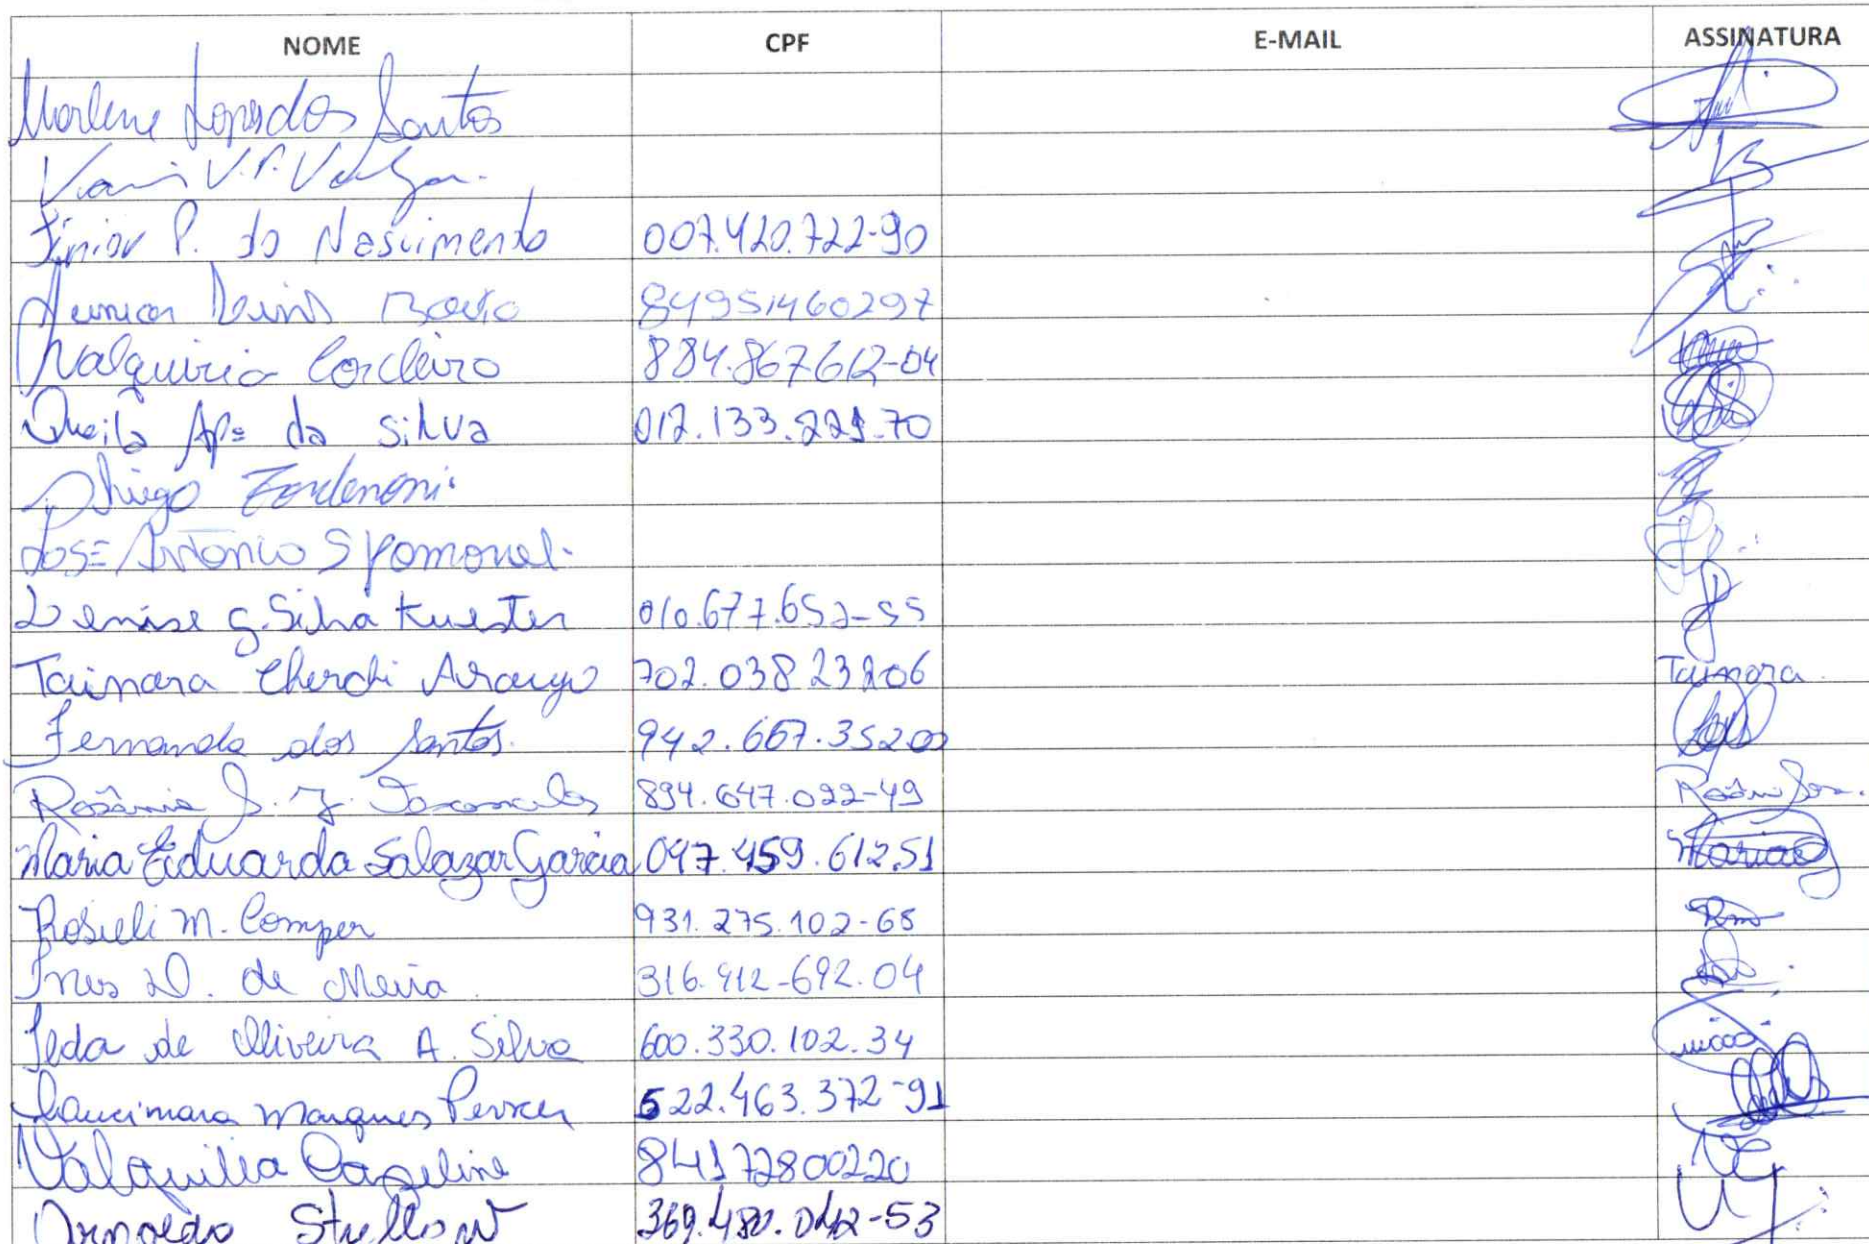 NOME CPF E-MAIL ASSINATURA
Marlene Lopes dos Santos
V.P.
Júnior P. do Nascimento 007.420.722-90
84951460297
Valquiria Cordeiro 884.867.612-04
Queila Apª da Silva 012.133.221.70
Thiago
José Antônio
Denise G. Silva Kuester 010.677.652-55
Tainara Cherchi Araujo 702.038 232 06 Tainara
Fernanda dos Santos. 942.667.352
Rosânia 894.647.022-49
Maria Eduarda Salazar Garcia 047.459.612.51 Maria
Rosieli M. Comper 931.275.102-68 Rm
Ines D. de Meira 316.912-692.04
Ieda de Oliveira A. Silva 600.330.102.34
Laucimara Marques 522.463.372-91
Valquilia 84172800220
Arnoldo 369.480.042-53